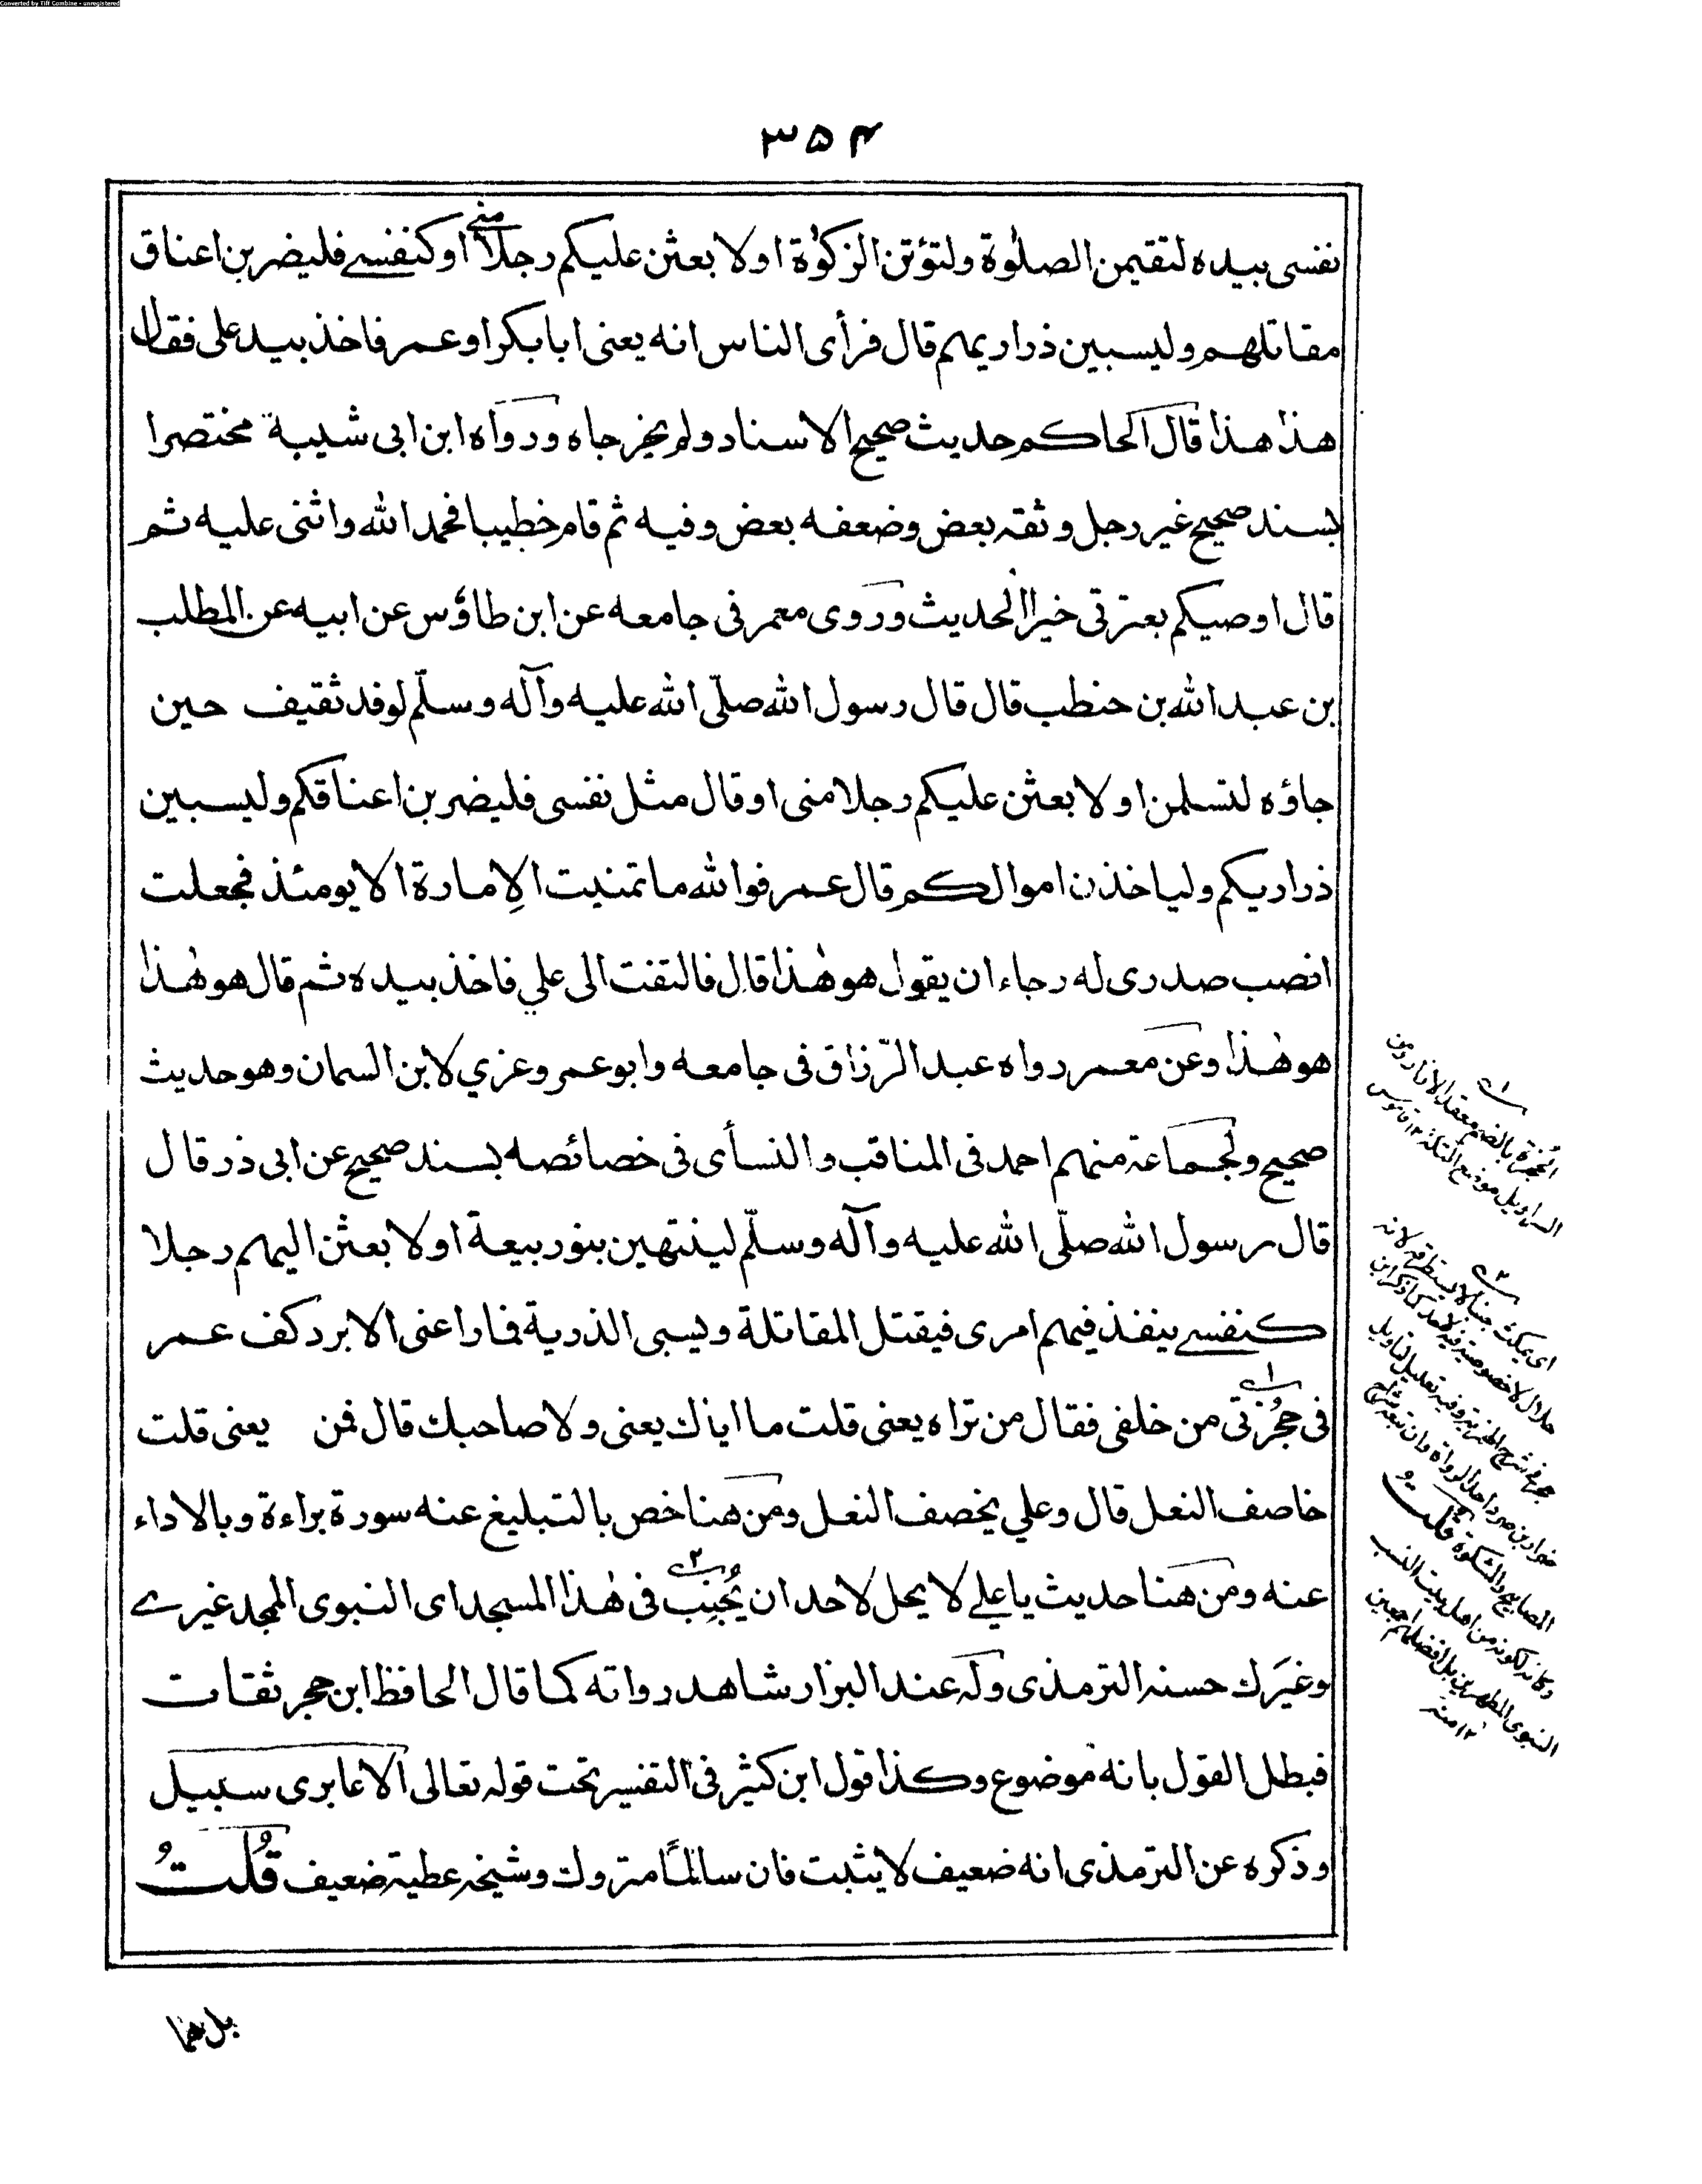 Converted by Tiff Combine - unregistered
۳۵۴
نفسى بيده لتقيمن الصلوٰة ولتؤتن الزكوٰة او لابعثن عليكم رجلا منے او كنفسے فليضربن اعناق
مقاتلهم وليسبين ذراريهم قال فرأى الناس انه يعنى ابابكر او عمر فاخذ بيد على فقال
هذا هذا قال الحاكم حديث صحيح الاسناد ولم يخرجاه ورواه ابن ابى شيبة مختصرا
بسند صحيح غير رجل وثقه بعض وضعفه بعض وفيه ثم قام خطيبا فحمد الله واثنى عليه ثم
قال اوصيكم بعترتى خيرا الحديث وروى معمر فى جامعه عن ابن طاؤس عن ابيه عن المطلب
بن عبد الله بن حنطب قال قال رسول الله صلّى الله عليه وآله وسلّم لوفد ثقيف حين
جاؤه لتسلمن او لابعثن عليكم رجلا منى او قال مثل نفسى فليضربن اعناقكم وليسبين
ذراريكم ولياخذن اموالكم قال عمر فوالله ما تمنيت الِامارة الا يومئذ فجعلت
انصب صدرى له رجاء ان يقول هو هٰذا قال فالتفت الى علي فاخذ بيده ثم قال هو هٰذا
هو هٰذا وعن معمر رواه عبد الرّزاق فى جامعه وابو عمر وعزي لابن السمان وهو حديث
صحيح ولجماعة منهم احمد فى المناقب والنسأى فى خصائصه بسند صحيح عن ابى ذر قال
قال رسول الله صلّى الله عليه وآله وسلّم لينتهين بنو ربيعة او لابعثن اليهم رجلا
كنفسے ينفذ فيهم امرى فيقتل المقاتلة ويسبى الذرية فما راعنى الا برد كف عمر
فى حُجُزتى من خلفى فقال من تراه يعنى قلت ما اياك يعنى ولا صاحبك قال فمن يعنى قلت
خاصف النعل قال وعلي يخصف النعل ومن هنا خص بالتبليغ عنه سورة براءة وبالاداء
عنه ومن هنا حديث يا علے لا يحل لاحد ان يُجْنِب فى هٰذا المسجد اى النبوى الممجد غيرے
وغيَرك حسنه الترمذى وله عند البزار شاهد رواته كما قال الحافظ ابن حجر ثقات
فبطل القول بانه موضوع وكذا قول ابن كثير فى التفسير تحت قوله تعالى الا عابرى سبيل
وذكره عن الترمذى انه ضعيف لا يثبت فان سالمًا متروك وشيخه عطية ضعيف قُلتُ
۱
الحُجزة بالضم معقد الازار ومن
السراويل موضع التكة ۱۲ قاموس
۲
اى يمكث جنبا لا يستطرقه لانه
حلال لا خصوصية فيه لاحد كما ذكر ابن
حجر فى شرح الهمزية وفيه تعليل لتاويل
ضرار بن صرد احد الرواة وان تبعه شراح
المصابيح والمشكوة قلتُ
وكانه لكونه من اهل بيت النسب
النبوى المطهرين بل افضلهم اجمعين
۱۲ منه
بل هما